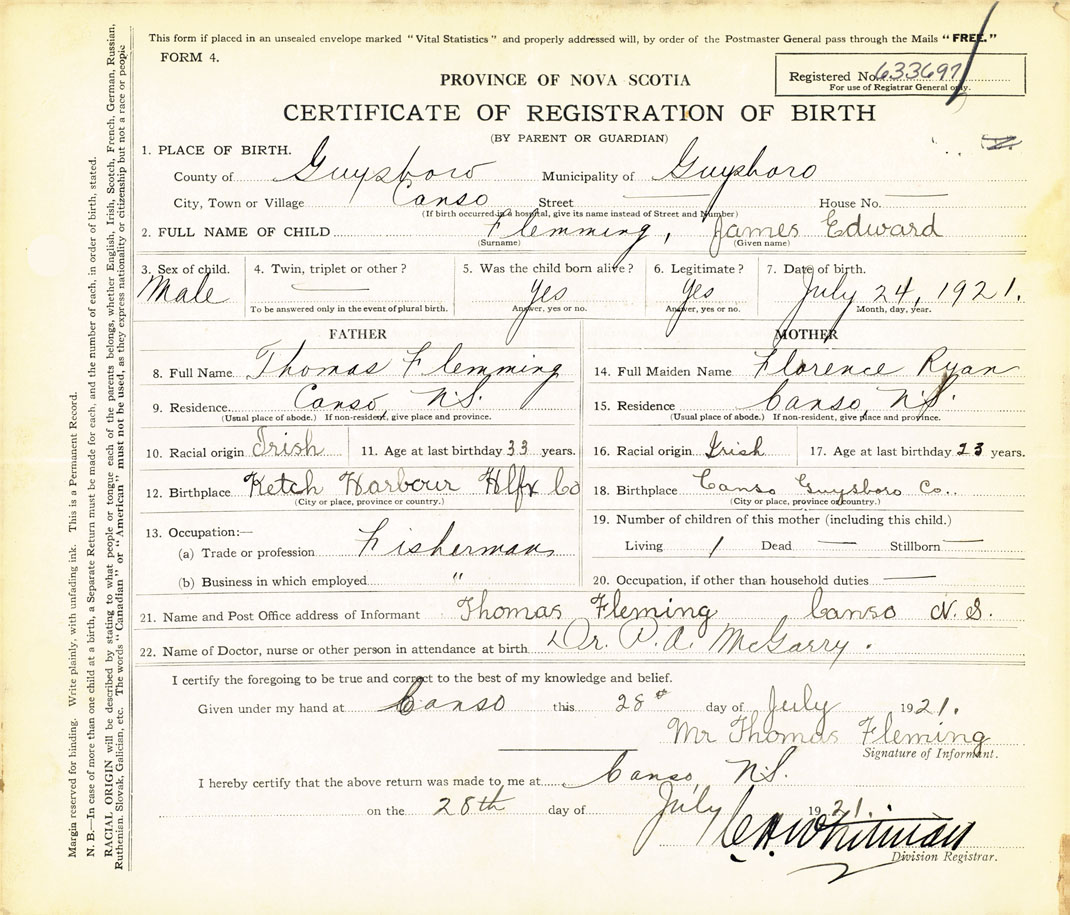 This form if placed in an unsealed envelope marked "Vital Statistics" and properly addressed will, by order of the Postmaster General pass through the Mails "FREE."
FORM 4.
PROVINCE OF NOVA SCOTIA
Registered No. 633697
For use of Registrar General only.
CERTIFICATE OF REGISTRATION OF BIRTH
(BY PARENT OR GUARDIAN)
1. PLACE OF BIRTH.
County of Guysboro Municipality of Guysboro
City, Town or Village Canso Street — House No. —
(If birth occurred in a hospital, give its name instead of Street and Number)
2. FULL NAME OF CHILD Flemming, James Edward
(Surname) (Given name)
3. Sex of child. 4. Twin, triplet or other? 5. Was the child born alive? 6. Legitimate? 7. Date of birth.
Male — Yes Yes July 24, 1921.
To be answered only in the event of plural birth. Answer, yes or no. Answer, yes or no. Month, day, year.
FATHER
8. Full Name Thomas Flemming
9. Residence Canso, N.S.
(Usual place of abode.) If non-resident, give place and province.
10. Racial origin Irish 11. Age at last birthday 33 years.
12. Birthplace Ketch Harbour Hlfx Co
(City or place, province or country.)
13. Occupation:—
(a) Trade or profession Fisherman
(b) Business in which employed "
MOTHER
14. Full Maiden Name Florence Ryan
15. Residence Canso, N.S.
(Usual place of abode.) If non-resident, give place and province.
16. Racial origin Irish 17. Age at last birthday 23 years.
18. Birthplace Canso Guysboro Co..
(City or place, province or country.)
19. Number of children of this mother (including this child.)
Living 1 Dead — Stillborn —
20. Occupation, if other than household duties —
21. Name and Post Office address of Informant Thomas Fleming Canso N.S.
22. Name of Doctor, nurse or other person in attendance at birth Dr. P.A. McGarry.
I certify the foregoing to be true and correct to the best of my knowledge and belief.
Given under my hand at Canso this 28th day of July 1921.
Mr Thomas Fleming
Signature of Informant.
I hereby certify that the above return was made to me at Canso, N.S.
on the 28th day of July 1921.
C.H. Whitman
Division Registrar.
Margin reserved for binding. Write plainly, with unfading ink. This is a Permanent Record.
N. B.—In case of more than one child at a birth, a Separate Return must be made for each, and the number of each, in order of birth, stated.
RACIAL ORIGIN will be described by stating to what people or tongue each of the parents belongs, whether English, Irish, Scotch, French, German, Russian,
Ruthenian, Slovak, Galician, etc. The words "Canadian" or "American" must not be used, as they express nationality or citizenship but not a race or people